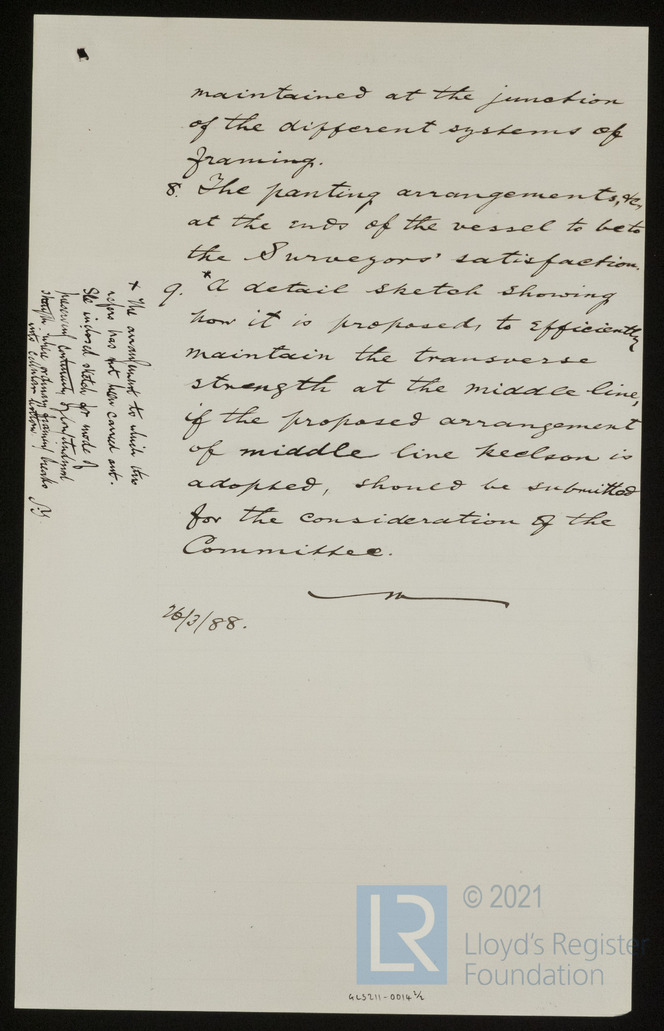 maintained at the junction
of the different systems of
framing.
8. The panting arrangements, &c,
at the ends of the vessel to be to
the Surveyors' satisfaction.
9. *A detail sketch showing
how it is proposed, to efficiently
maintain the transverse
strength at the middle line,
if the proposed arrangement
of middle line keelson is
adopted, should be submitted
for the consideration of the
Committee.
26/3/88.
* The arrangement to which this
refers has not been carried out.
See inclosed sketch for mode of
preserving continuity of longitudinal
strength where ordinary framing breaks
into cellular bottom.
© 2021
LR
Lloyd's Register
Foundation
GLS211-0014 2/2